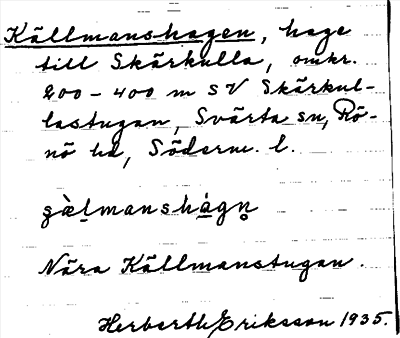 Källmanshagen, hage
till Skärkulla, omkr.
200 - 400 m SV Skärkul-
lastugan, Svärta sn, Rö-
nö hd, Söderm. l.
Nära Källmanstugan.
Herberth Eriksson 1935.